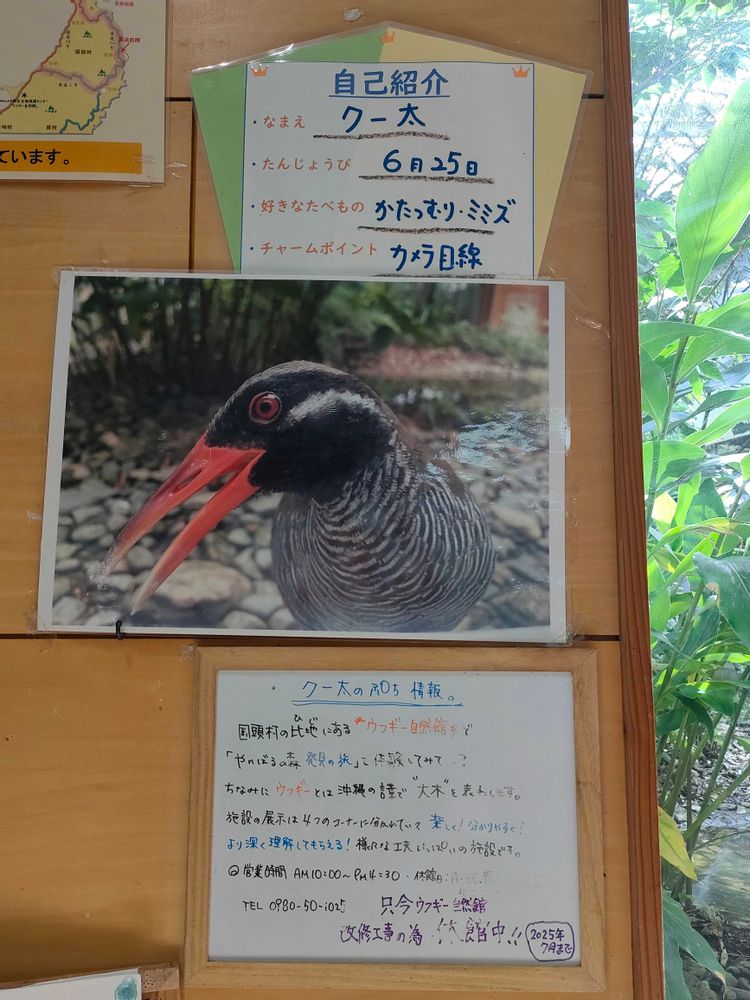 ています。
自己紹介
・なまえ クー太
・たんじょうび 6月25日
・好きなたべもの かたつむり・ミミズ
・チャームポイント カメラ目線
・クー太のぷち情報。
国頭村の比地にある"ウフギー自然館"で
「やんばるの森 発見の旅」を体験してみて
ちなみに ウフギーとは沖縄の言葉で"大木"を表わします。
施設の展示は4つのコーナーに分かれていて 楽しく!分かりやすく!
より深く理解してもらえる!様々な工夫いっぱいの施設です。
営業時間 AM10:00〜PM4:30・休館日:
TEL 0980-50-1025
只今ウフギー自然館
改修工事の為 休館中!!
2025年
7月まで